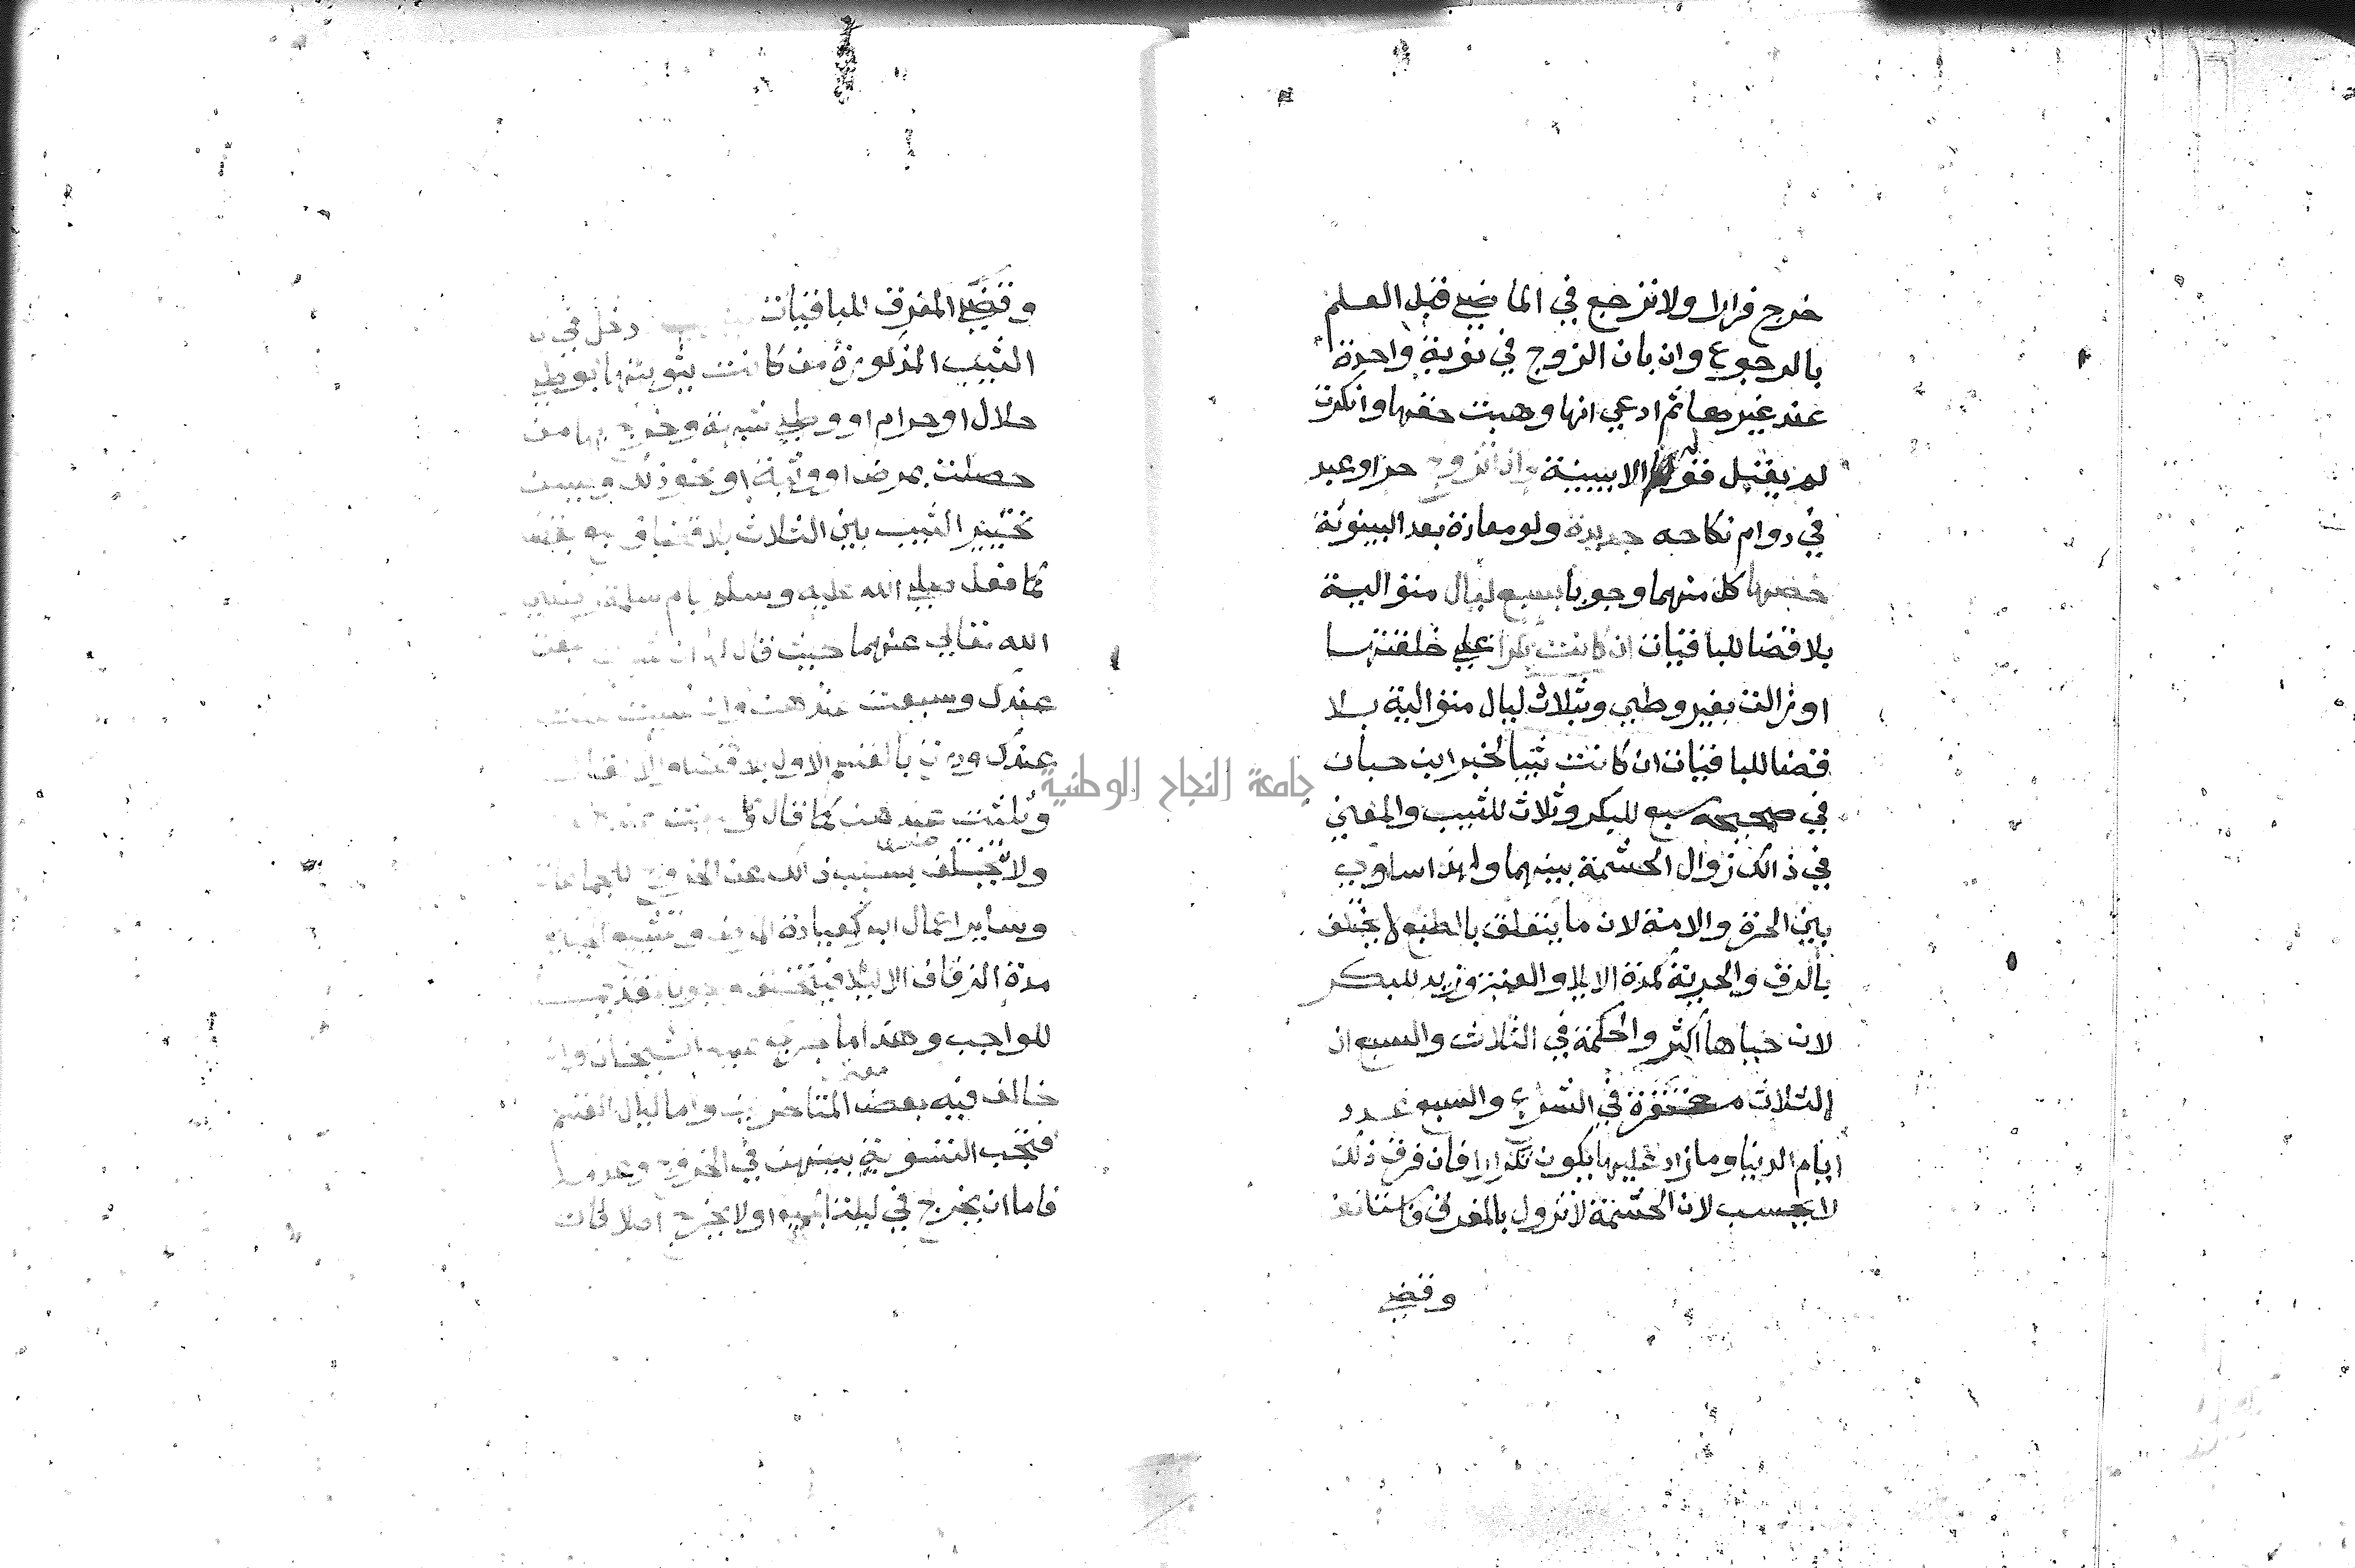 خرج فرارا ولا ترجع في الماضي قبل العلم
بالرجوع وان بان الزوج في نوبة واحدة
عند غيرها ثم ادعي انها وهبت حقها وانكرت
لم يقبل قوله الا ببينة وان تزوج حر او عبد
في دوام نكاحه جديدة ولو معادة بعد البينونة
خصها كل منهما وجوبا بسبع ليال متوالية
بلا قضا للباقيات ان كانت بكرا علي خلقتها
او زالت بغير وطي وبثلاث ليال متوالية بلا
قضا للباقيات ان كانت ثيبا لخبر ابن حبان
في صحيحه سبع للبكر وثلاث للثيب والمعني
في ذالك زوال الحشمة بينهما ولهذا ساوي
بين الحرة والامة لان ما يتعلق بالطبع لا يختلف
بالرق والحرية كمدة الايلا والعنة وزيد للبكر
لان حياها اكثر والحكمة في الثلاث والسبع ان
الثلاث مغتفرة في الشرع والسبع عدد
ايام الدنيا وما زاد عليها يكون تكرارا فان فرق ذلك
لا يحسب لان الحشمة لا تزول بالمفرق
وقضي
وقضي المفرق للباقيات دخل في
الثيب المذكورة من كانت ثيوبتها بوطي
حلال او حرام او وطي شبهة وخرج بها من
حصلت بمرض او وثبة او نحو ذلك ويسن
تخيير الثيب بين الثلاث بلا قضا
كما فعل صلي الله عليه وسلم بام سلمة رضي
الله تعالي عنهما حيث قال لها ان شيت سبعت
عندك وسبعت عندهن وان شيت ثلثت
عندك ودرت بالقسم الاول بلا قضا والا لقال
وثلثت عندهن كما قال وسبعت عندهن
ولا يتخلف بسبب ذالك عن الخروج للجماعات
وساير اعمال البر كعيادة المريض وتشييع الجنايز
مدة الزفاف الا ليلا فيتخلف وجوبا تقديما
للواجب وهذا ما جري عليه الشيخان وان
خالف فيه بعض المتاخرين واما ليال القسم
فتجب التسوية بينهن في الخروج وعدمه
فاما ان يخرج في ليلة الجميع او لا يخرج اصلا فان
جامعة النجاح الوطنية